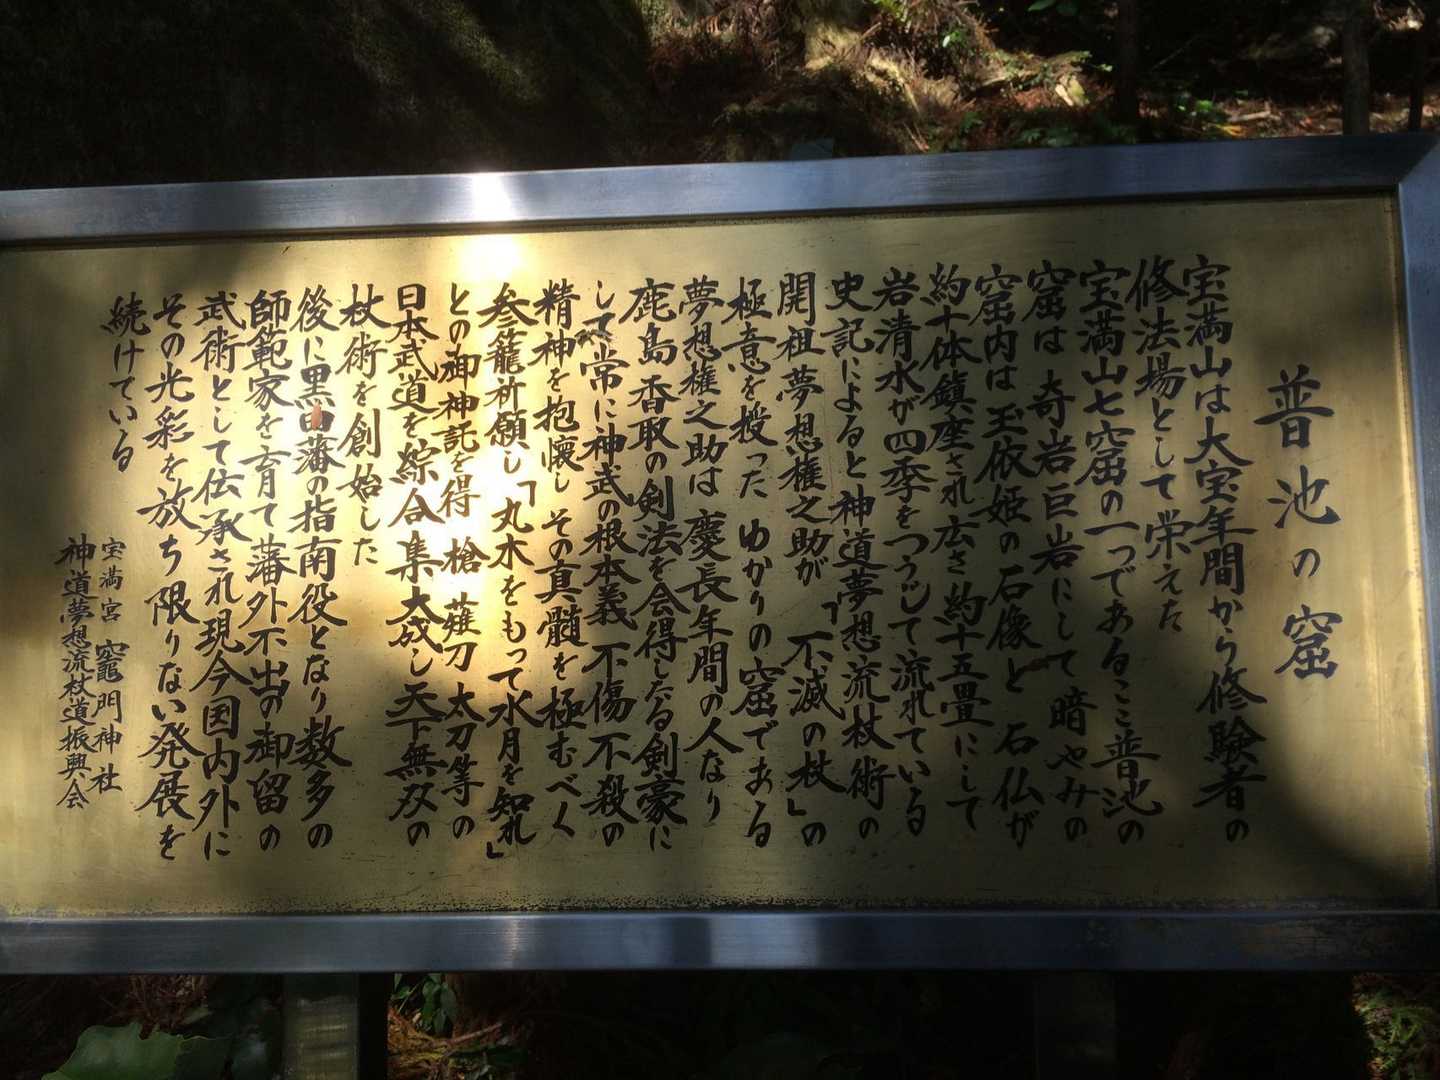 普池の窟
宝満山は大宝年間から修験者の
修法場として栄えた
宝満山七窟の一つであるここ普池の
窟は 奇岩巨岩にして暗やみの
窟内は 玉依姫の石像と 石仏が
約十体鎮座され広さ約十五畳にして
岩清水が四季をつうじて流れている
史記によると神道夢想流杖術の
開祖夢想権之助が「不滅の杖」の
極意を授った ゆかりの窟である
夢想権之助は 慶長年間の人なり
鹿島香取の剣法を会得したる剣豪に
して常に神武の根本義 不傷不殺の
精神を抱懐し その真髄を極むべく
参籠祈願し「丸木をもって水月を知れ」
との御神託を得 槍 薙刀 太刀等の
日本武道を綜合集大成し天下無双の
杖術を創始した
後に黒田藩の指南役となり数多の
師範家を育て藩外不出の御留の
武術として伝承され現今国内外に
その光彩を放ち限りない発展を
続けている
宝満宮 竈門神社
神道夢想流杖道振興会